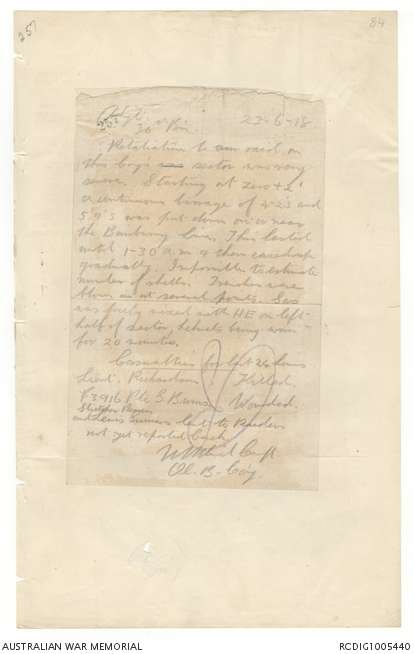 257
84
Adjt.
30th Bn. 23-6-18
Retaliation to our raid on
this coy's sector was very
severe. Starting at zero + 2'
a continuous barrage of 4.2's and
5.9's was put down on or near
the Banbury line. This lasted
until 1-30 a.m. & then eased up
gradually. Impossible to estimate
number of shells. Trenches were
blown in at several points. Gas
was freely used with HE on left
half of sector, helmets being worn
for 20 minutes.
Casualties for last 24 hours
Lieut. Richardson Killed.
Pte Burns Wounded.
Stretcher Bearers
and Lewis Gunners lent to Raiders
not yet reported back
Capt
OC. B. Coy.
AUSTRALIAN WAR MEMORIAL
RCDIG1005440